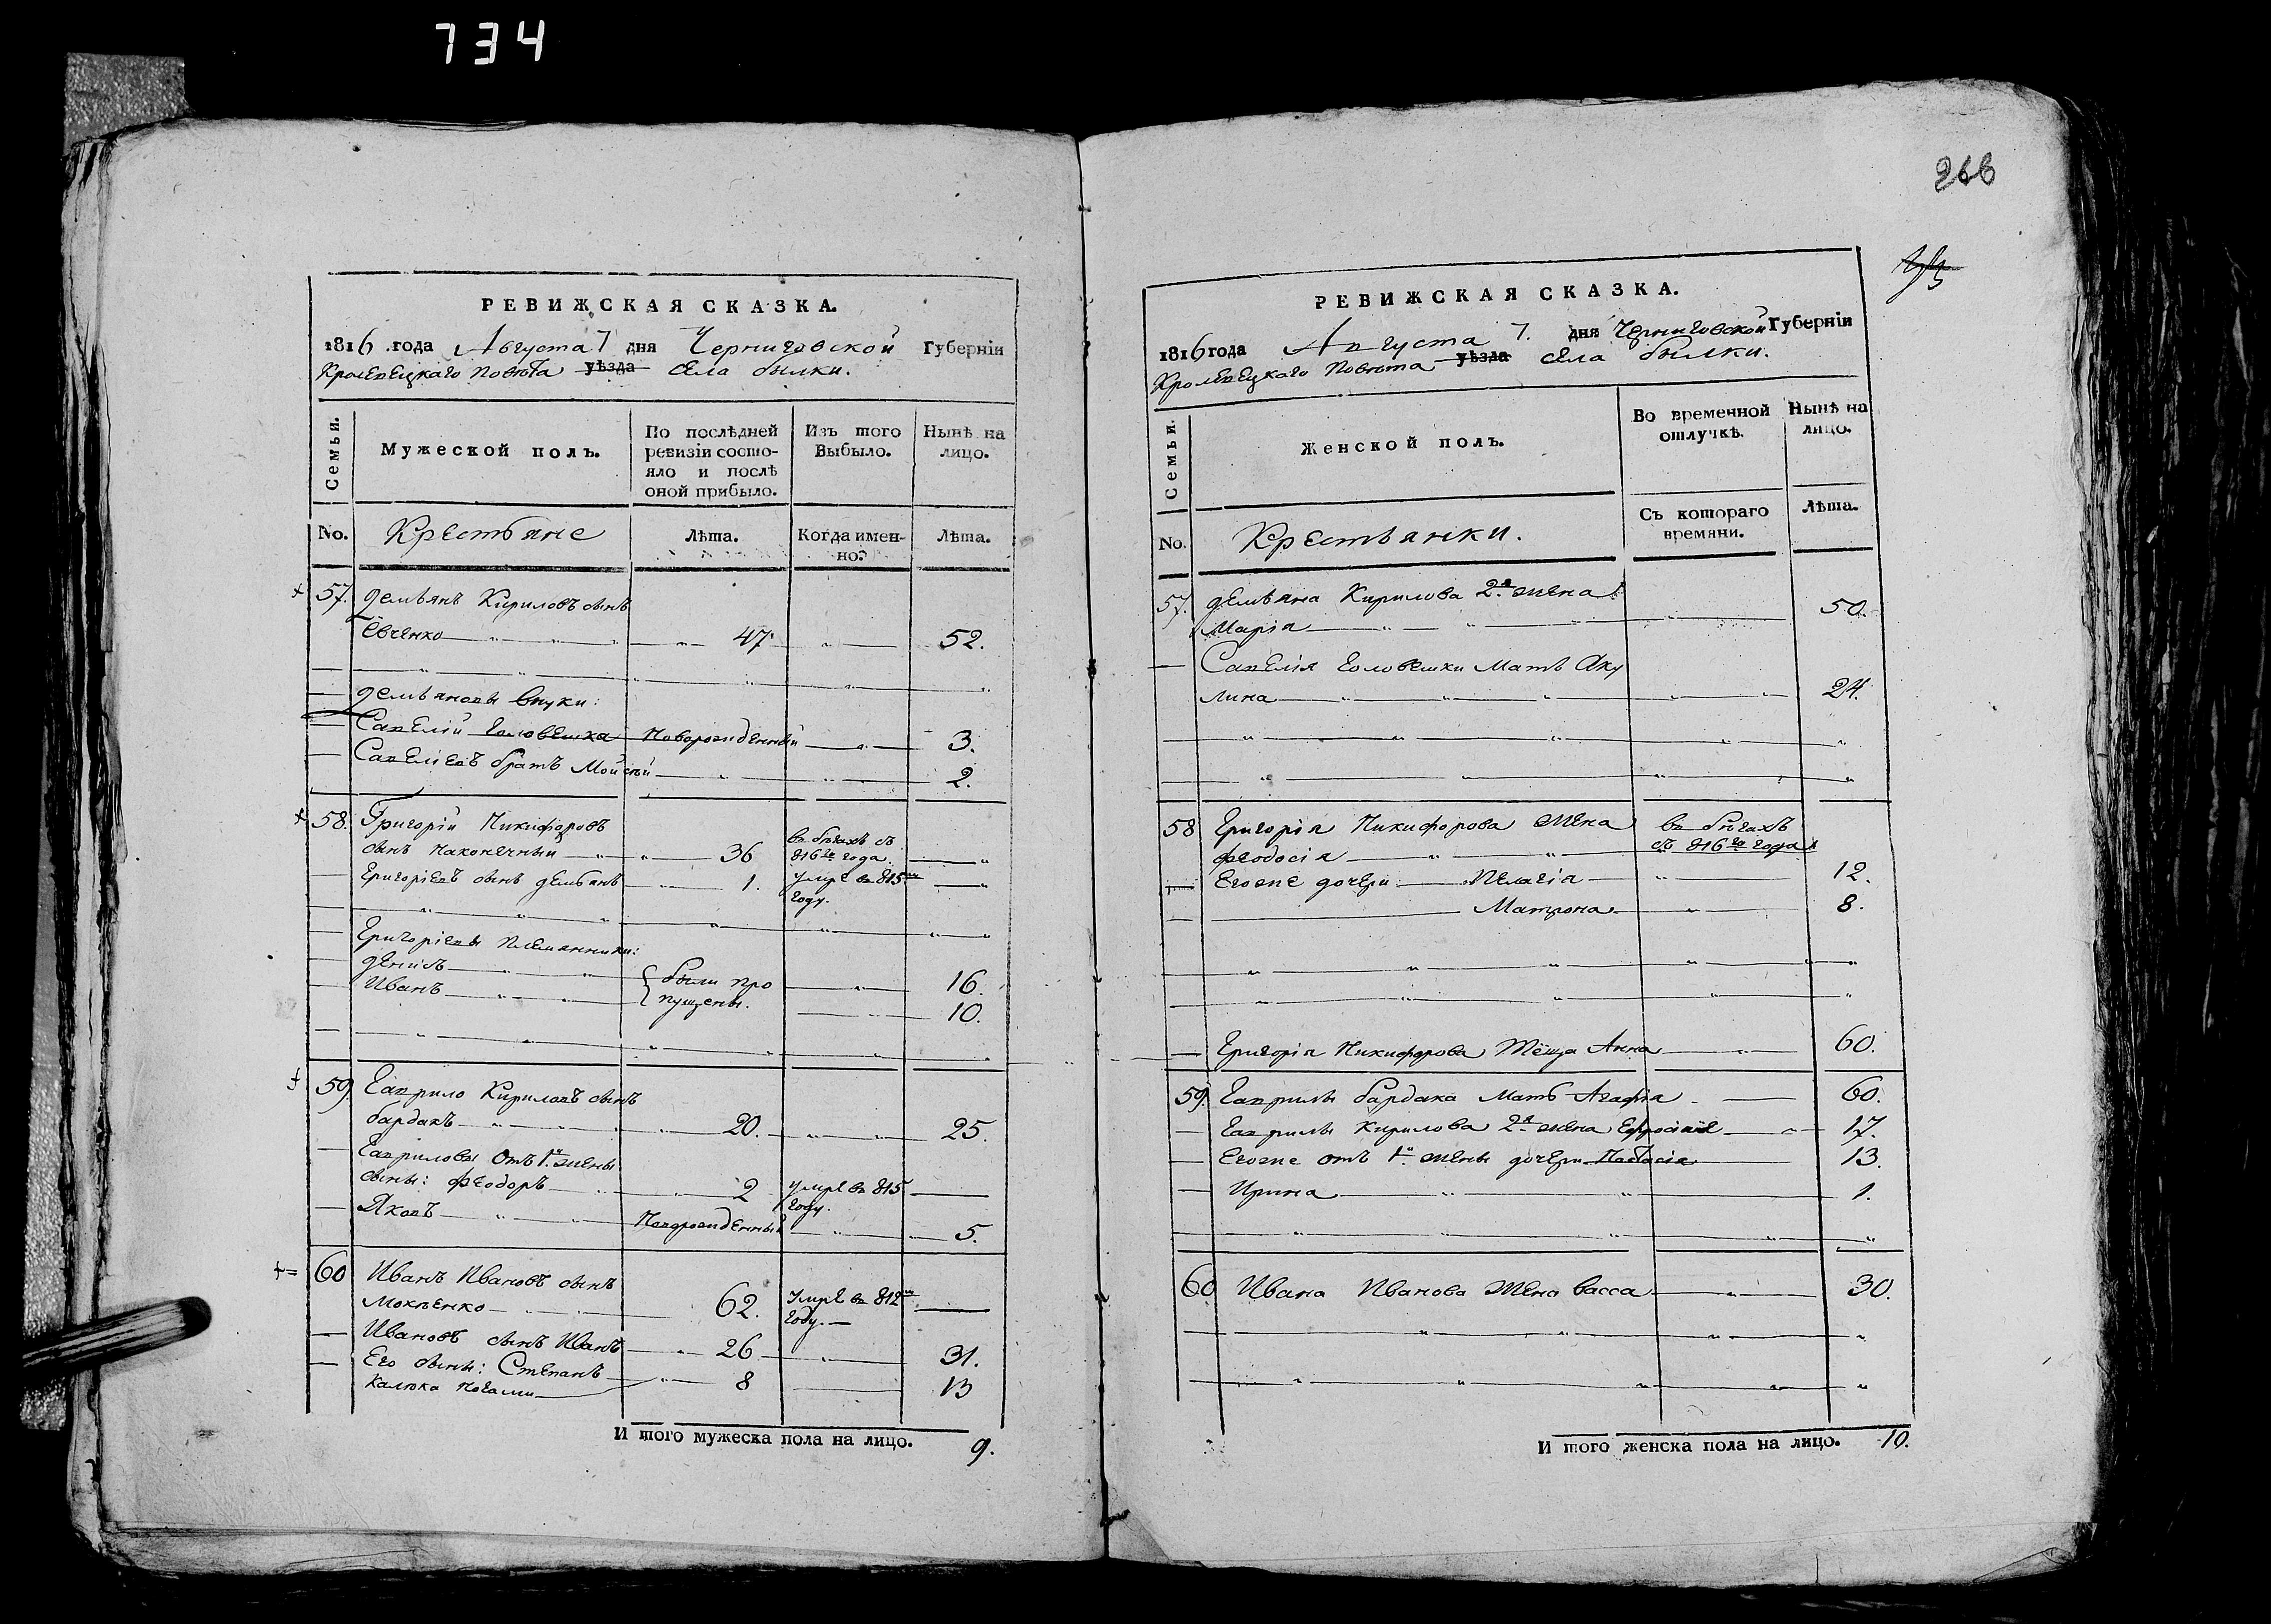 734
РЕВИЖСКАЯ СКАЗКА.
1816 года Августа 7 дня Черниговской Губерніи
Кролевецкаго Повѣта уѣзда Села былки.
Семьи.
Мужеской полъ.
По послѣдней
ревизіи состо-
яло и послѣ
оной прибыло.
Изъ того
Выбыло.
Нынѣ на
лицо.
No.
Крестьяне
Лѣта.
Когда имен-
но?
Лѣта.
57. Демьянъ Кириловъ сынъ
Евченко 47 52.
Демьяновы внуки:
Савелій Головешка Новорожденный 3.
Савеліевъ братъ Мойсѣй 2.
58. Григорій Никифоровъ
сынъ Наконечный 36 въ бѣгахъ съ
816го года.
Григоріевъ сынъ Демьянъ 1. умре в 815м
году.
Григоріевы племянники:
Денисъ были про 16.
Иванъ пущены. 10.
59. Гаврило Кириловъ сынъ
бардакъ 20. 25.
Гавриловы отъ 1й жены
сыны: Феодоръ 2 умре в 815
году.
Яковъ Новорожденный 5.
60 Иванъ Ивановъ сынъ
Мохненко 62. умре в 812м
году.
Ивановъ сынъ Иванъ 26 31.
Его сыны: Степанъ 8 13
калѣка ногами
И того мужеска пола на лицо. 9.
266
РЕВИЖСКАЯ СКАЗКА.
1816 года Августа 7. дня Черниговской Губерніи
Кролевецкаго Повѣта уѣзда села былки.
Семьи.
Женской полъ.
Во временной
отлучкѣ.
Нынѣ на
лицо.
No.
Крестьянки.
Съ котораго
времяни.
Лѣта.
57. Демьяна Кирилова 2я жена
Марія 50.
Савелія Головешки Мать Аку
лина 24.
58 Григорія Никифорова жена в бѣгахъ
Феодосія съ 816го года
Егоже дочери Пелагія 12.
Матрона 8.
Григорія Никифорова Тёща Анна 60.
59. Гаврилы бардака Мать Агафія 60.
Гаврилы Кирилова 2я жена Ефросинія 17.
Егоже отъ 1й жены дочери Настасія 13.
Ирина 1.
60 Ивана Иванова Жена Васса 30.
И того женска пола на лицо. 10.